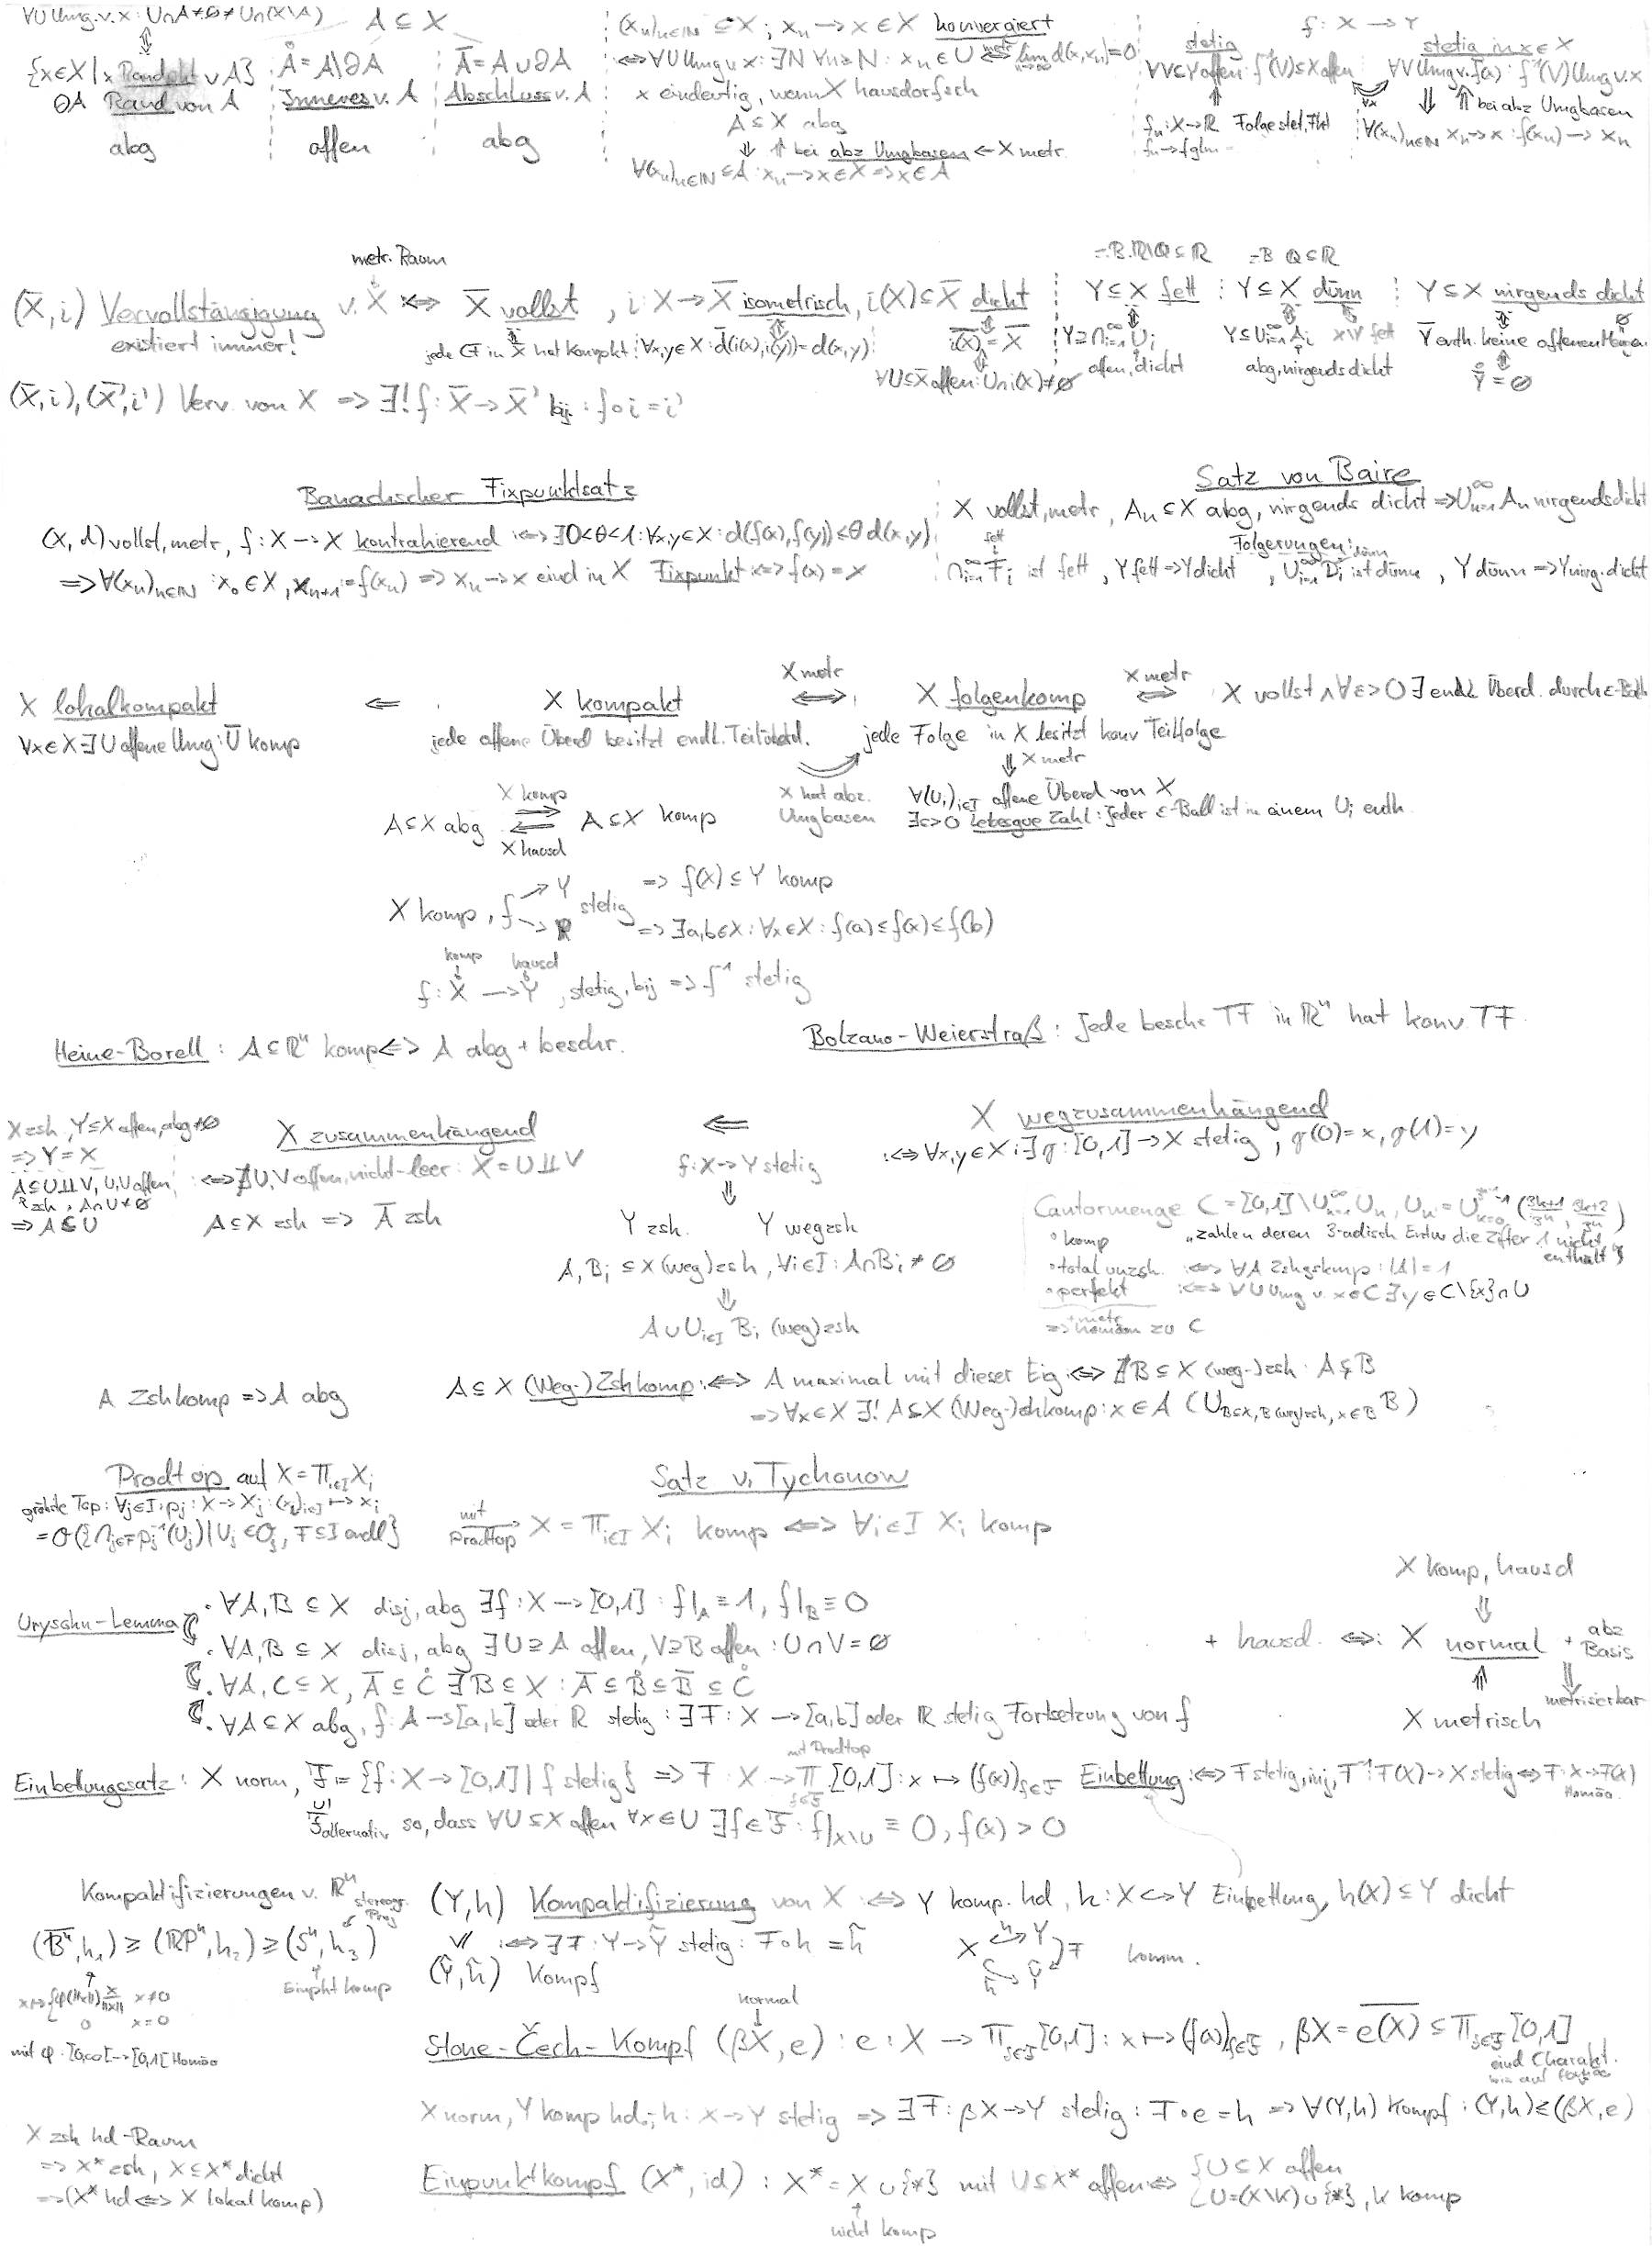 ∀U Umg. v. x: U∩A≠∅≠U∩(X\A)
A ⊆ X
{x∈X | x Randpkt v A}
∂A Rand von A
abg
Å = A\∂A
Inneres v. A
offen
Ā = A∪∂A
Abschluss v. A
abg
(xₙ)ₙ∈ℕ ⊆ X ; xₙ → x ∈ X konvergiert
⇔ ∀U Umg v x: ∃N ∀n≥N: xₙ∈U ⇔ lim d(x,xₙ)=0
x eindeutig, wenn X hausdorfsch
A ⊆ X abg
⇓ ⇑ bei abz Umgbasen ← X metr
∀(xₙ)ₙ∈ℕ ⊆ A: xₙ → x∈X ⇒ x∈A
f: X → Y
stetig
∀V⊆Y offen: f⁻¹(V)⊆X offen
fₙ: X→ℝ Folge stet. Fkt
fₙ→f glm
stetig in x∈X
∀V Umg v. f(x): f⁻¹(V) Umg v. x
⇓ ⇑ bei abz Umgbasen
∀(xₙ)ₙ∈ℕ xₙ→x : f(xₙ) → xₙ
metr. Raum
(X̄, i) Vervollständigung v. X ⇔ X̄ vollst, i: X → X̄ isometrisch, i(X)⊆X̄ dicht
existiert immer!
jede CF in X hat Kompkt ∀x,y∈X: d̄(i(x),i(y))=d(x,y)
i(X)‾ = X̄
∀U⊆X̄ offen: U∩i(X)≠∅
z.B. ℝ\ℚ⊆ℝ
Y⊆X fett
Y⊇⋂ᵢ₌₁^∞ Uᵢ
offen, dicht
z.B ℚ⊆ℝ
Y⊆X dünn
Y⊆⋃ᵢ₌₁^∞ Aᵢ X\Y fett
abg, nirgends dicht
Y⊆X nirgends dicht
Ȳ enth. keine offenen Mengen
Ȳ° = ∅
(X̄, i), (X̄', i') Verv. von X ⇒ ∃! f: X̄ → X̄' bij : f∘i = i'
Banachscher Fixpunktsatz
(X, d) vollst, metr, f: X → X kontrahierend :⇔ ∃0<θ<1: ∀x,y∈X: d(f(x),f(y)) ≤ θ d(x,y)
⇒ ∀(xₙ)ₙ∈ℕ : x₀∈X, xₙ₊₁=f(xₙ) ⇒ xₙ→x eind in X Fixpunkt :⇔ f(x)=x
Satz von Baire
X vollst, metr, Aₙ⊆X abg, nirgends dicht ⇒ ⋃ₙ₌₁^∞ Aₙ nirgends dicht
Folgerungen:
fett
dünn
⋂ᵢ₌₁^∞ Fᵢ ist fett, Y fett ⇒ Y dicht, ⋃ᵢ₌₁^∞ Dᵢ ist dünn, Y dünn ⇒ Y nirg. dicht
X lokalkompakt ⇐ X kompakt ⇔ (X metr) X folgenkomp ⇔ (X metr) X vollst ∧ ∀ε>0 ∃ endl. Überd. durch ε-Bälle
∀x∈X ∃U offene Umg: Ū komp
jede offene Überd besitzt endl. Teilüberd.
jede Folge in X besitzt konv Teilfolge
X hat abz. Umgbasen
⇓ X metr
∀(Uᵢ)ᵢ∈I offene Überd von X
∃ε>0 Lebesgue Zahl: Jeder ε-Ball ist in einem Uᵢ enth.
X komp
A⊆X abg ⇄ A⊆X komp
X hausd
X komp, f → Y stetig ⇒ f(X) ⊆ Y komp
→ ℝ ⇒ ∃a,b∈X: ∀x∈X: f(a)≤f(x)≤f(b)
komp hausd
f: X → Y, stetig, bij ⇒ f⁻¹ stetig
Heine-Borell: A⊆ℝⁿ komp ⇔ A abg + beschr.
Bolzano-Weierstraß: Jede beschr TF in ℝⁿ hat konv TF
X zsh, Y⊆X offen, abg ≠∅
⇒ Y = X
A⊆U⨿V, U,V offen,
zsh, A∩U≠∅
⇒ A⊆U
X zusammenhängend ⇐ X wegzusammenhängend
:⇔ ∄U,V offen, nicht-leer: X=U⨿V
:⇔ ∀x,y∈X: ∃g: [0,1]→X stetig, g(0)=x, g(1)=y
A⊆X zsh ⇒ Ā zsh
f: X→Y stetig
⇓
Y zsh. Y wegzsh
A, Bᵢ ⊆ X (weg)zsh, ∀i∈I: A∩Bᵢ ≠ ∅
⇓
A∪⋃ᵢ∈I Bᵢ (weg)zsh
Cantormenge C = [0,1]\⋃ₙ₌₁^∞ Uₙ, Uₙ = ⋃ₖ₌₀^(3ⁿ⁻¹-1) ((3k+1)/3ⁿ, (3k+2)/3ⁿ)
• komp „zahlen deren 3-adisch Entw die Ziffer 1 nicht enthält"
• total unzsh. :⇔ ∀A Zshgskmp: |A|=1
• perfekt :⇔ ∀U Umg v. x∈C ∃y∈C\{x}∩U
+ metr
⇒ homöom zu C
A Zshkomp ⇒ A abg
A⊆X (Weg-)Zshkomp :⇔ A maximal mit dieser Eig ⇔ ∄B⊆X (weg-)zsh: A⊊B
⇒ ∀x∈X ∃! A⊆X (Weg-)zhkomp: x∈A (⋃_{B⊆X, B(weg)zsh, x∈B} B)
Prodtop auf X=∏ᵢ∈I Xᵢ
gröbste Top: ∀j∈I: pⱼ: X→Xⱼ: (xᵢ)ᵢ∈I ↦ xⱼ
= O({⋂ⱼ∈F pⱼ⁻¹(Uⱼ) | Uⱼ∈Oⱼ, F⊆I endl})
Satz v. Tychonow
mit Prodtop X = ∏ᵢ∈I Xᵢ komp ⇔ ∀i∈I Xᵢ komp
X komp, hausd
⇓
Urysohn-Lemma
• ∀A,B ⊆ X disj, abg ∃f: X→[0,1] : f|A≡1, f|B≡0
• ∀A,B ⊆ X disj, abg ∃U⊇A offen, V⊇B offen: U∩V=∅
• ∀A,C⊆X, Ā⊆C° ∃B⊆X: Ā⊆B°⊆B̄⊆C°
• ∀A⊆X abg, f: A→[a,b] oder ℝ stetig: ∃F: X→[a,b] oder ℝ stetig Fortsetzung von f
+ hausd. ⇔: X normal + abz Basis
⇑ ⇓
X metrisch metrisierbar
mit Prodtop
Einbettungssatz: X norm, F = {f: X→[0,1] | f stetig} ⇒ F: X → ∏ [0,1]: x ↦ (f(x))f∈F Einbettung :⇔ F stetig, inj, F⁻¹: F(X)→X stetig ⇔ F: X→F(X) Homöo.
F alternativ so, dass ∀U⊆X offen ∀x∈U ∃f∈F: f|X\U ≡ 0, f(x) > 0
Kompaktifizierungen v. ℝⁿ
stereogr. Proj
(B̄ⁿ, h₁) ≥ (ℝPⁿ, h₂) ≥ (Sⁿ, h₃)
Einpkt komp
x ↦ {φ(||x||) x/||x|| x≠0
0 x=0
mit φ: [0,∞[→[0,1[ Homöo
(Y,h) Kompaktifizierung von X :⇔ Y komp. hd, h: X↪Y Einbettung, h(X)⊆Y dicht
≥ :⇔ ∃F: Y→Ỹ stetig: F∘h = h̃
(Ỹ, h̃) Kompf
X h Y F h̃ Ỹ komm.
normal
Stone-Čech-Kompf (βX, e) : e: X → ∏f∈F [0,1]: x↦(f(x))f∈F, βX = e(X)‾ ⊆ ∏f∈F [0,1]
eind Charakt.
X norm, Y komp hd, h: X→Y stetig ⇒ ∃F: βX→Y stetig: F∘e=h ⇒ ∀(Y,h) Kompf: (Y,h)≤(βX,e)
X zsh hd-Raum
⇒ X* zsh, X⊆X* dicht
⇒ (X* hd ⇔ X lokalkomp)
Einpunktkompf (X*, id) : X* = X∪{*} mit U⊆X* offen :⇔ {U⊆X offen
U=(X\K)∪{*}, K komp
nicht komp